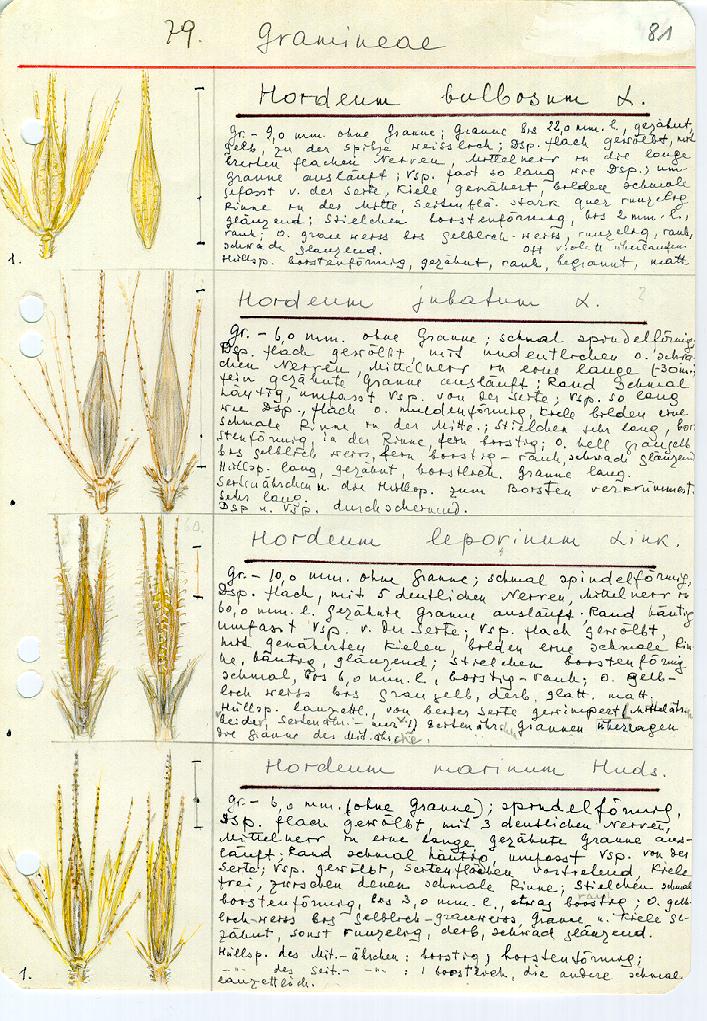 79. Gramineae 81
Hordeum bulbosum L.
Gr. - 9,0 mm. ohne Granne; Granne bis 22,0 mm. l., gezähnt,
gelb, zu der Spitze weisslich; Dsp. flach gewölbt, mit
breiten flachen Nerven, Mittelnerv in die lange
Granne ausläuft; Vsp. fast so lang wie Dsp.; um-
gefasst v. der Seite, Kiele genähert, bilden schmale
Rinne in der Mitte, Seitenflä. stark quer runzelig
glänzend; Stielchen borstenförmig, bis 2 mm. l.,
rauh; O. grau weiss bis gelblich-weiss, runzelig, rauh,
schwach glänzend. Oft violett überlaufen.
1. Hüllsp. borstenförmig, gezähnt, rauh, begrannt, matt
Hordeum jubatum L. ?
Gr. - 6,0 mm. ohne Granne; schmal spindelförmig;
Dsp. flach gewölbt, mit undeutlichen o. schwä-
chen Nerven, Mittelnerv in eine lange
fein gezähnte Granne ausläuft; Rand schmal
häutig, umfasst Vsp. von der Seite; Vsp. so lang
wie Dsp., flach o. muldenförmig, Kiele bilden eine
schmale Rinne in der Mitte.; Stielchen sehr lang, bor-
stenförmig, in der Rinne, fein borstig; O. hell graugelb
bis gelblich weiss, fein borstig - rauh, schwach glänzend
Hüllsp. lang, gezähnt, borstlich. Granne lang.
Seitenährchen u. die Hüllsp. zum Borsten verkrümmert.
Sehr lang.
Dsp u. Vsp. durchscheinend.
Hordeum leporinum Link.
Gr. - 10,0 mm. ohne Granne; schmal spindelförmig,
Dsp. flach, mit 5 deutlichen Nerven, Mittelnerv in
60,0 mm. l. gezähnte Granne ausläuft. Rand häutig
umfasst Vsp. v. der Seite; Vsp. flach gewölbt,
mit genäherten Kielen, bilden eine schmale Rin-
ne, häutig, glänzend; Stielchen borstenförmig
schmal, bis 6,0 mm. l., borstig-rauh; O. gelb-
lich weiss bis graugelb, derb, glatt, matt.
Hüllsp. lanzettl., von beider Seite gewimpert
beider, Seitenähr. - Seitenähr. grannen überlagen
die Granne des Mit.ährche.
Hordeum marinum Huds.
Gr. - 6,0 mm. (ohne Granne); spindelförmig,
Dsp. flach gewölbt mit 3 deutlichen Nerven,
Mittelnerv in eine lange gezähnte Granne aus-
läuft; Rand schmal häutig, umfasst Vsp. von der
Seite; Vsp. gewölbt, Seitenflächen vortretend, Kiele
frei, zwischen denen schmale Rinne; Stielchen schmal
borstenförmig, bis 3,0 mm. l., etwas borstig; O. gelb-
lich-weiss bis gelblich-grauweiss, Granne u. Kiele ge-
zähnt, sonst runzelig, derb, schwach glänzend.
Hüllsp. des Mit.-ährchen: borstig, borstenförmig;
-"- des Seit.- -"- : 1 borstlich, die andere schmal
1. lanzettlich.